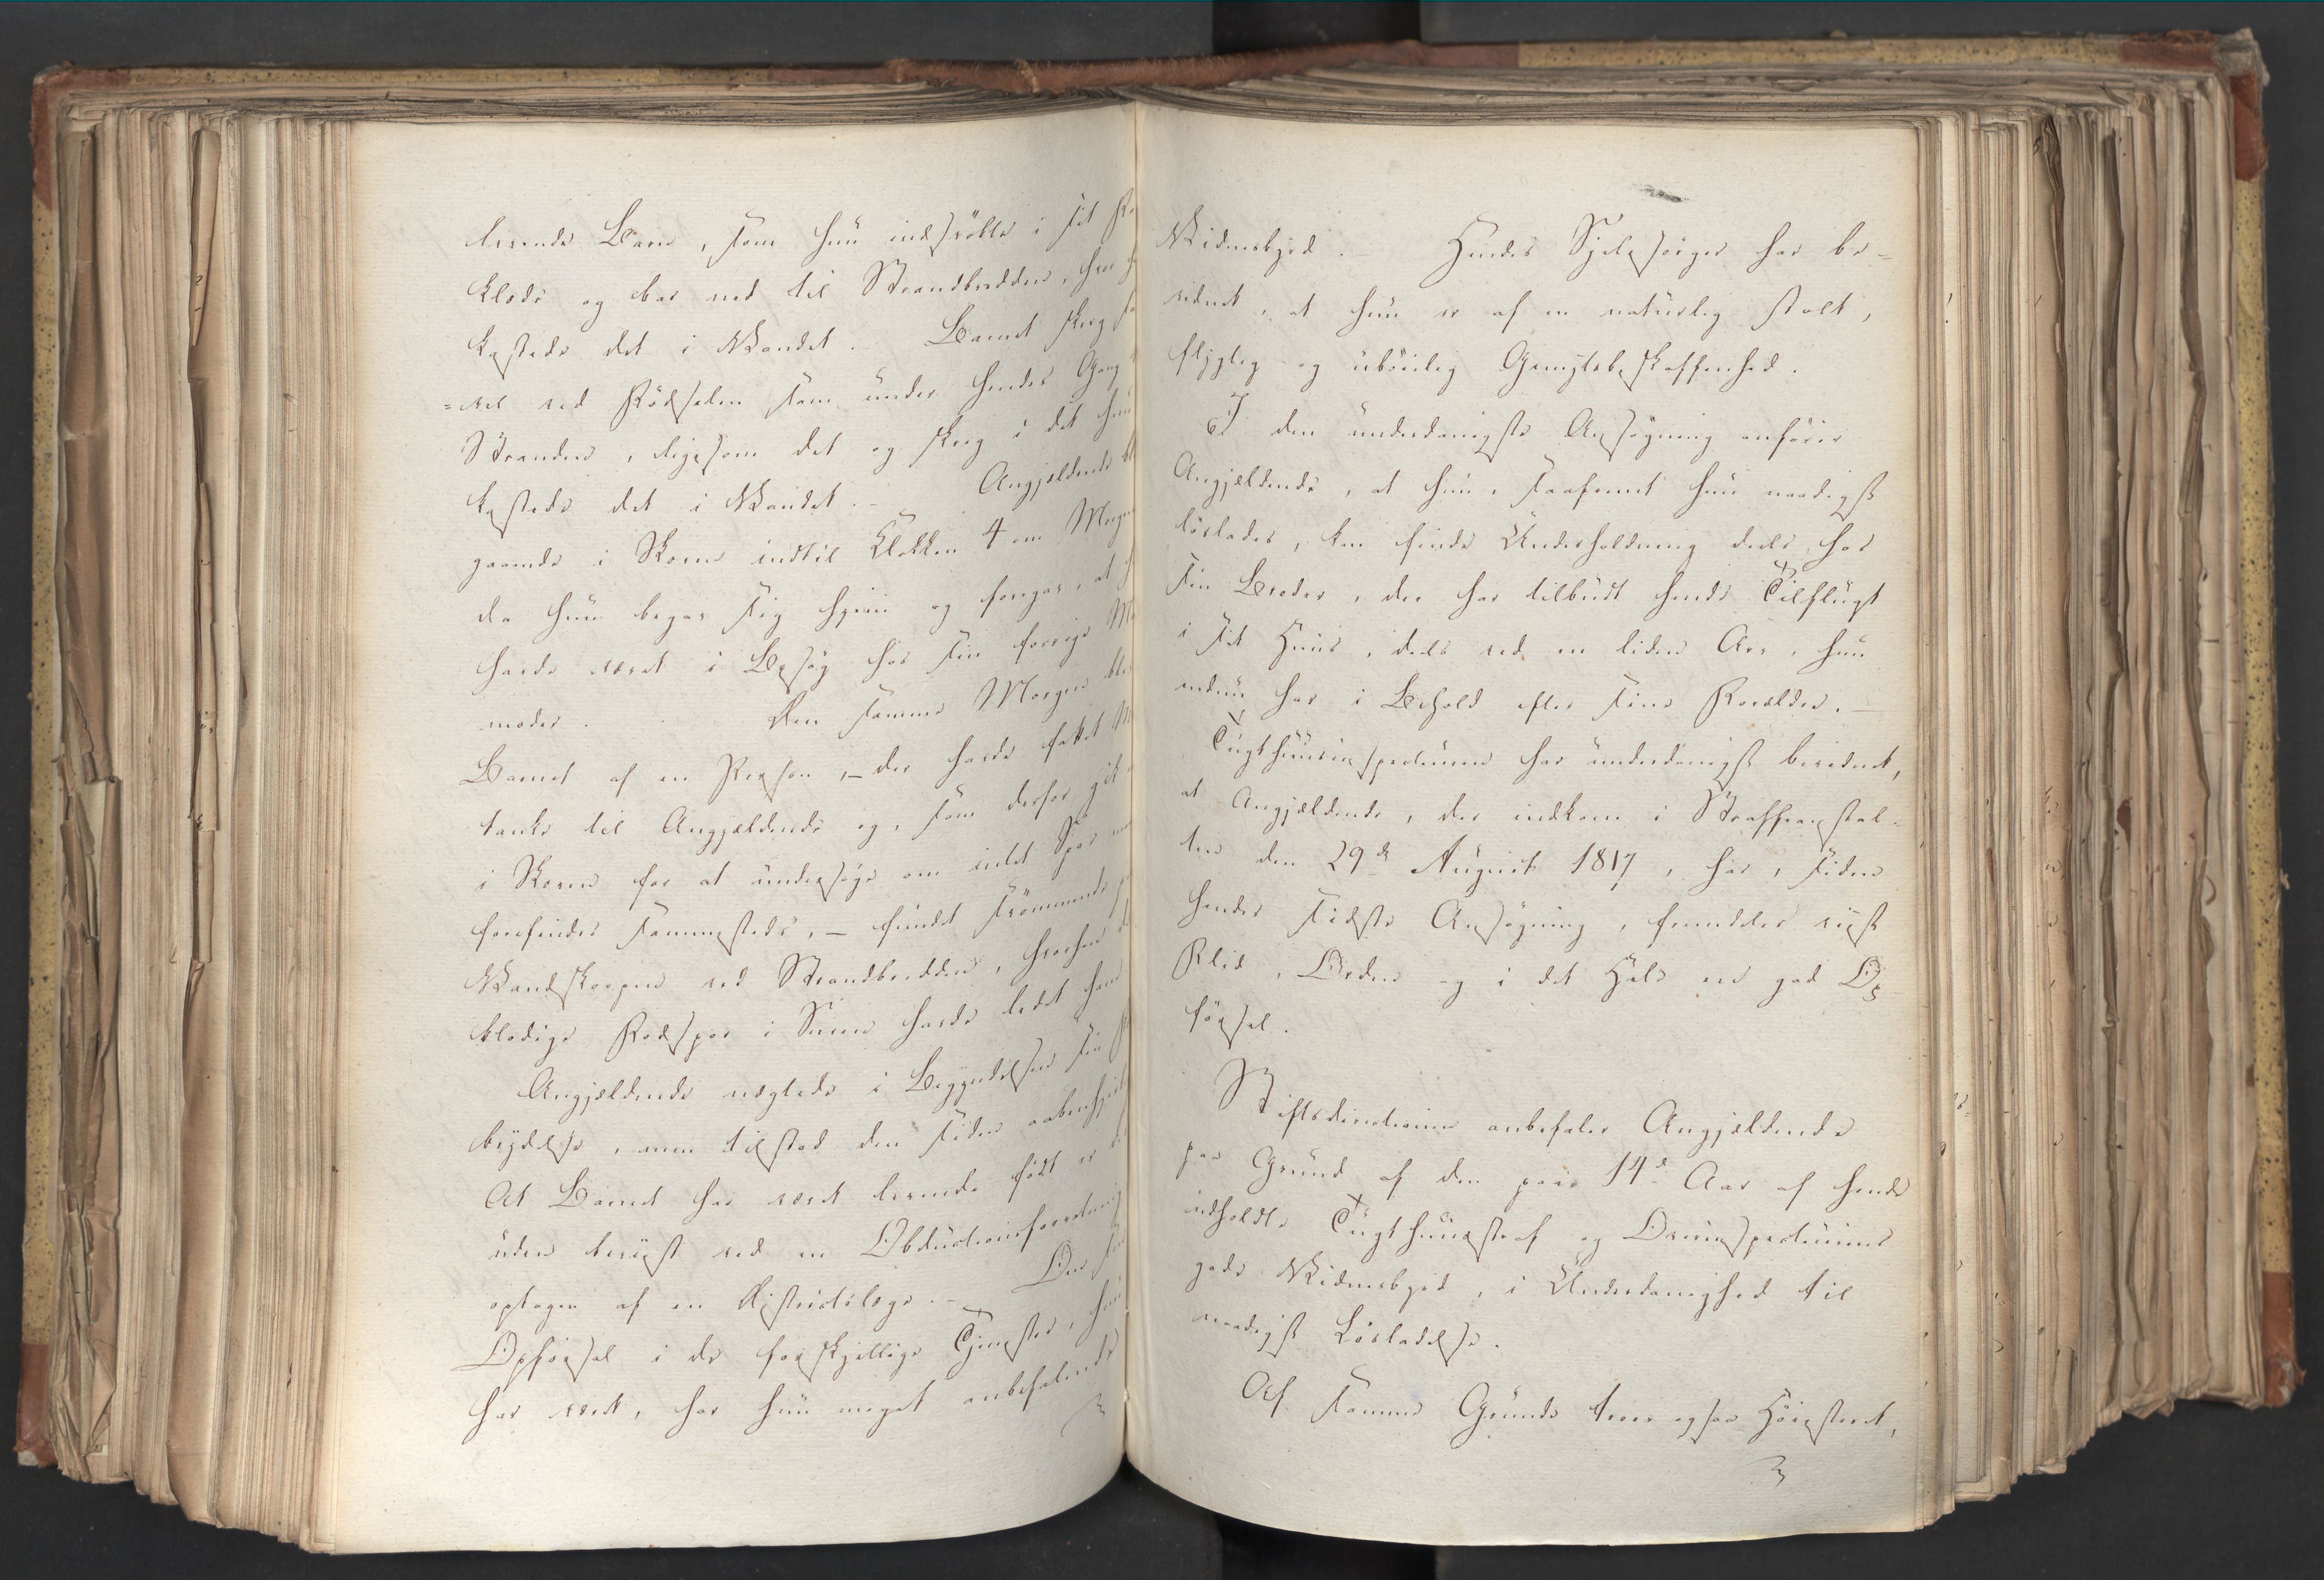 levende Barn, som hun indsvöbte i sit
klæde og bar ned til Strandbredden, hvor
kastede det i Vandet. Barnet skreg
=vel ved Födselen som under hendes Gang
Stranden, ligesom det og skreg i det hun
kastede det i Vandet. Angjældende
gaaende i Skoven indtil Klokken 4 om Morgen
da hun begav sig hjem og foregav, at
havde været i Besög hos sin forrige
moder. Den samme Morgen blev
Barnet af en Person, – der havde fattet
tanke til Angjældende og, som derfor gik
i Skoven for at undersöge om intet Spor
forefindes sammesteds, – fundet svömmende
Vandskorpen ved Strandbredden, hvorhen
blodige Fodspor i Sneen havde ledet ham
Angjældende nægtede i Begyndelsen sin
brydelse, men tilstod den siden aabenhjert
At Barnet har været levende födt er
uden beviist ved en Obductionsforretning
optagen af en Districtslæge. – Om sin
Opförsel i de forskjellige Tjenester, hun
har været, har hun meget anbefalende
Vidnesbyrd. – Hendes Sjelesörger har be=
vidnet, at hun er af en naturlig stolt,
flygtig og uböielig Gemytsbeskaffenhed.
I den underdanigste Ansögning anförer
Angjældende, at hun, saafremt hun naadigst
löslades, kan finde Underholdning deels hos
sin Broder, der har tilbudt hende Tilflugt
i sit Huus, deels ved en liden Arv, hun
endnu har i Behold efter sine Forældre. –
Tugthuusinspectionen har underdanigst bevidnet,
at Angjældende, der indkom i Straffeanstal=
ten den 29de August 1817, har, siden
hendes sidste Ansögning, fremdeles viist
Flid, Orden og i det Hele en god Op
försel.
Stiftsdirectionen anbefaler Angjældende
paa Grund af den paa 14de Aar af hende
udholdte Tugthuusstraf og Overinspectionens
gode Vidnesbyrd, i Underdanighed til
naadigst Lösladelse.
Af samme Grunde troer ogsaa Höiesteret,